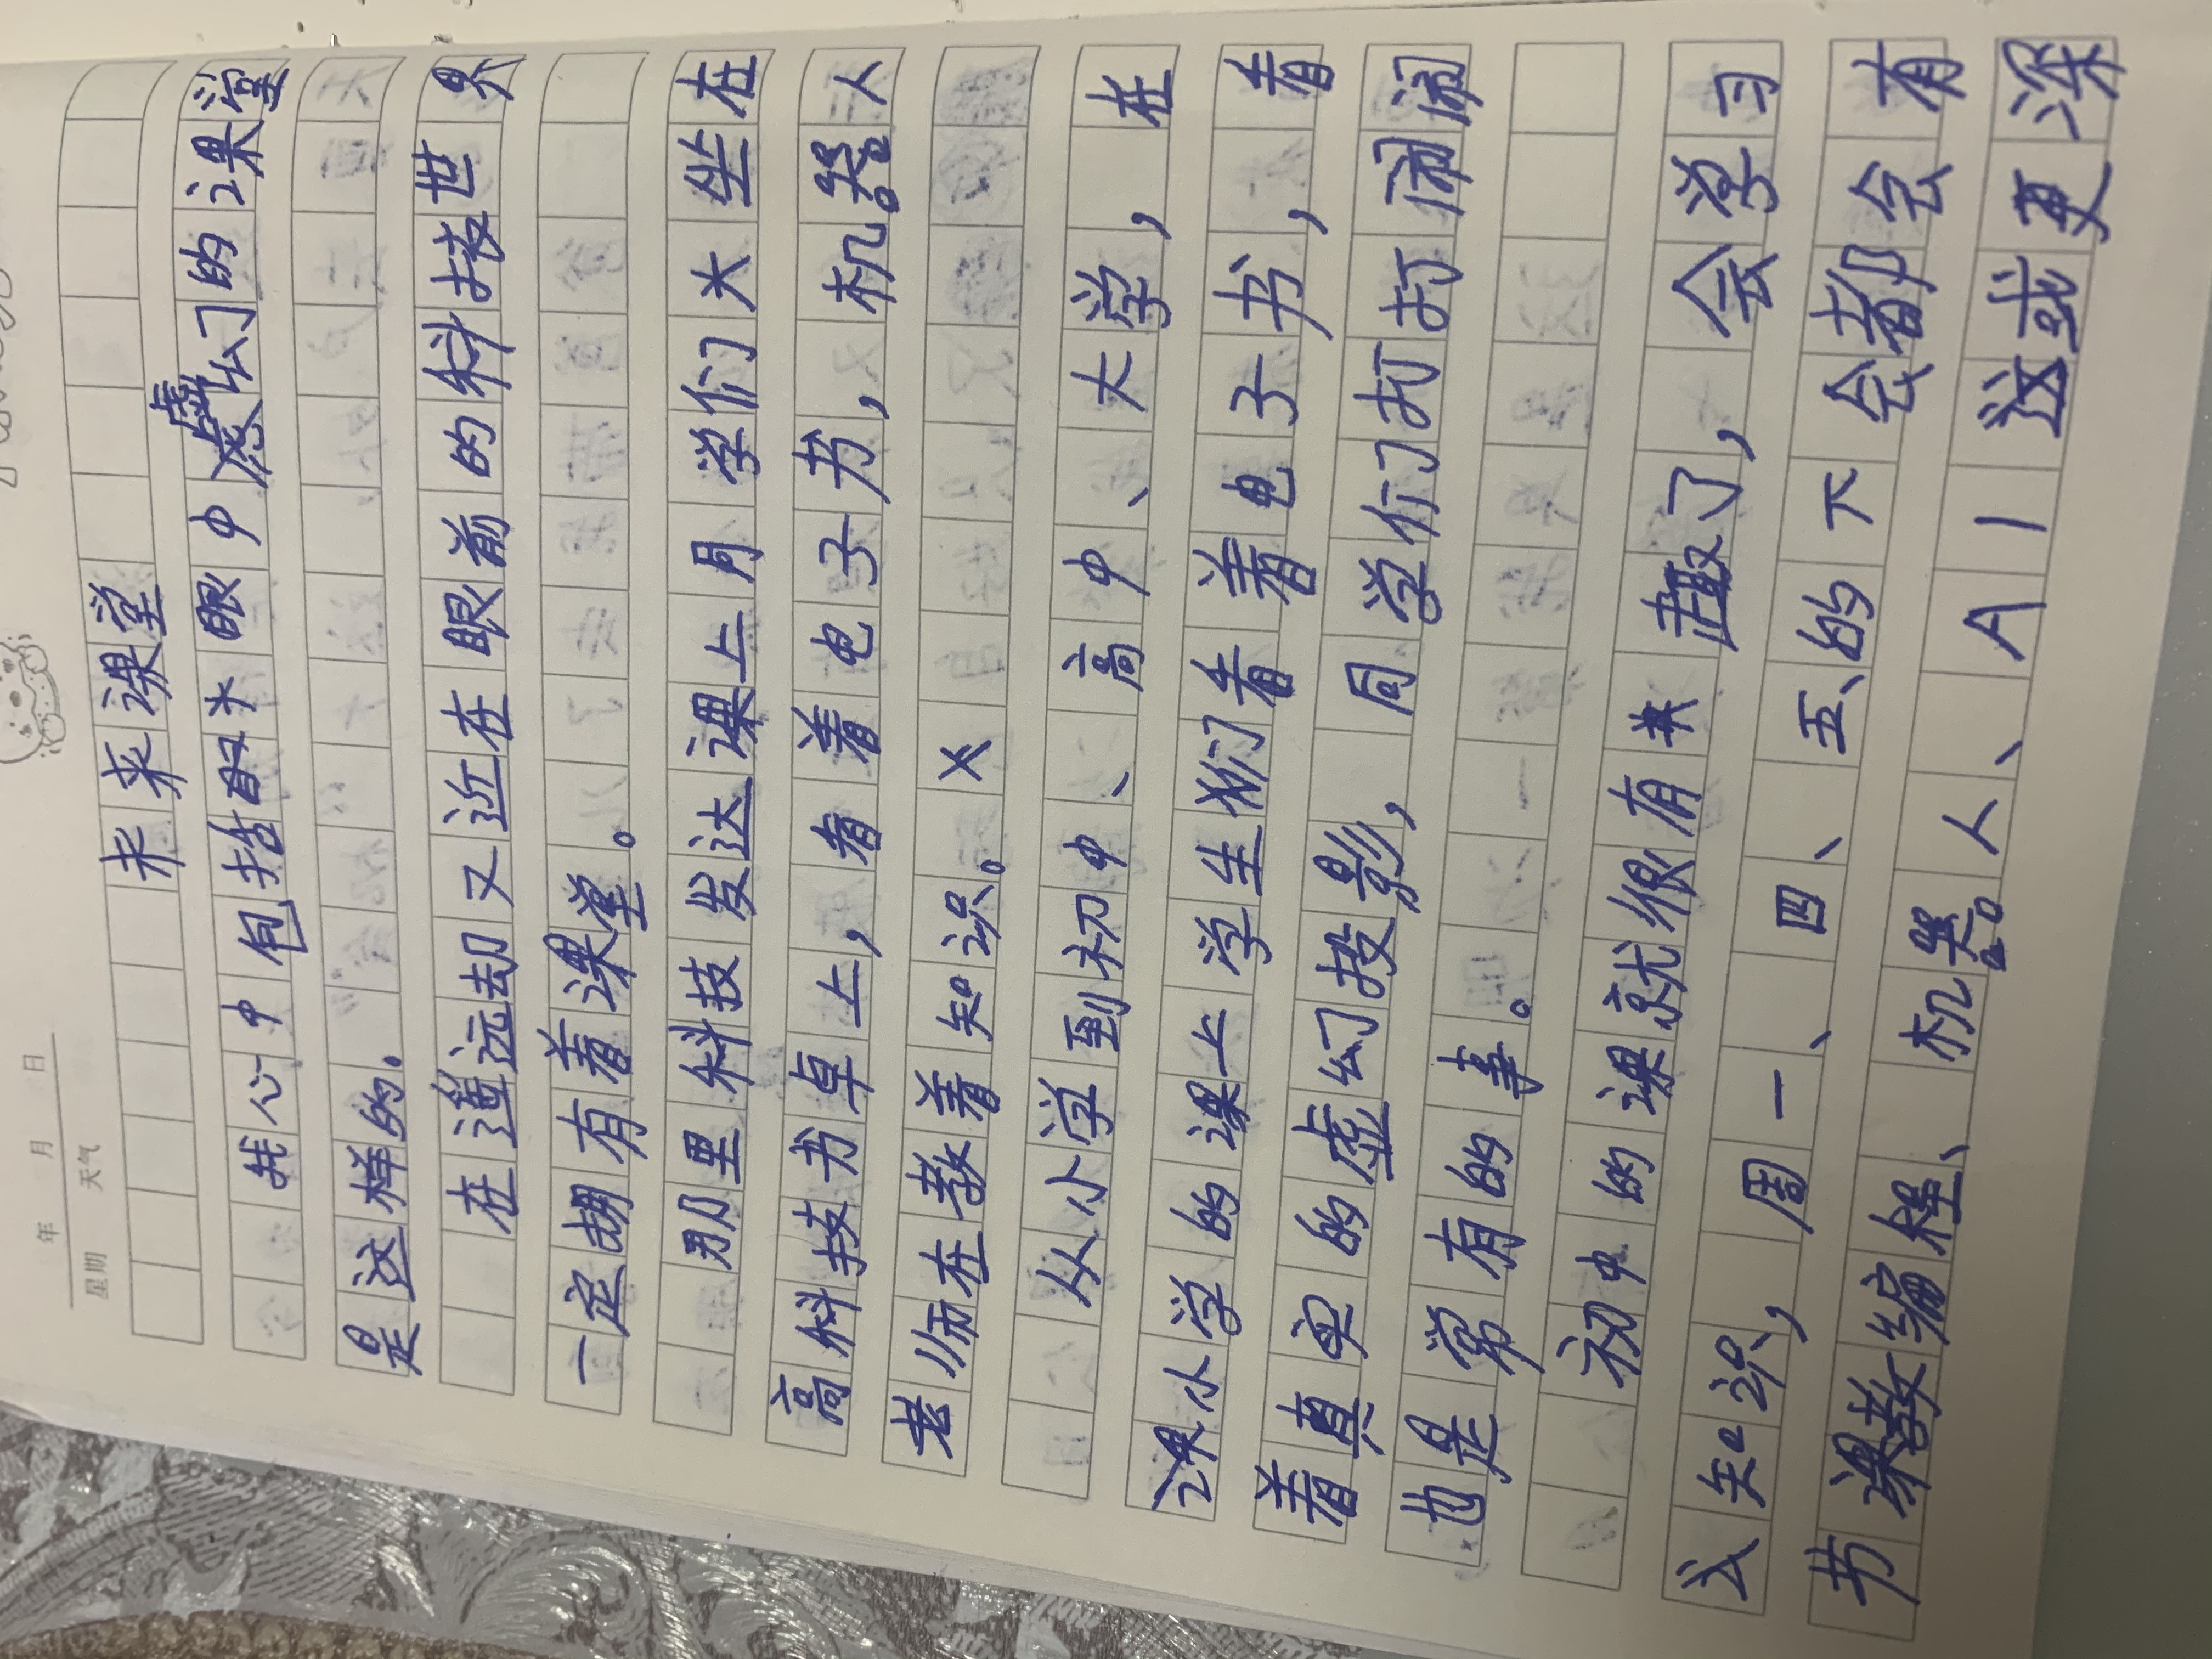 年 月 日
星期 天气
未来课堂
我心中包括眼中虚幻的课堂
是这样的。
在遥远却又近在眼前的科技世界
一定拥有着课堂。
那里科技发达课上同学们大坐在
高科技书卓上,看着电子书,机器人
老师在教着知识。
从小学到初中、高中、大学,在
课小学的课上学生们看着电子书,看
着真实的虚幻投影,同学们打打闹闹
也是常有的事。
初中的课就很有趣了,会学习
知识,周一、四、五的下会都会有
书课教编程、机器人、AI这或更深